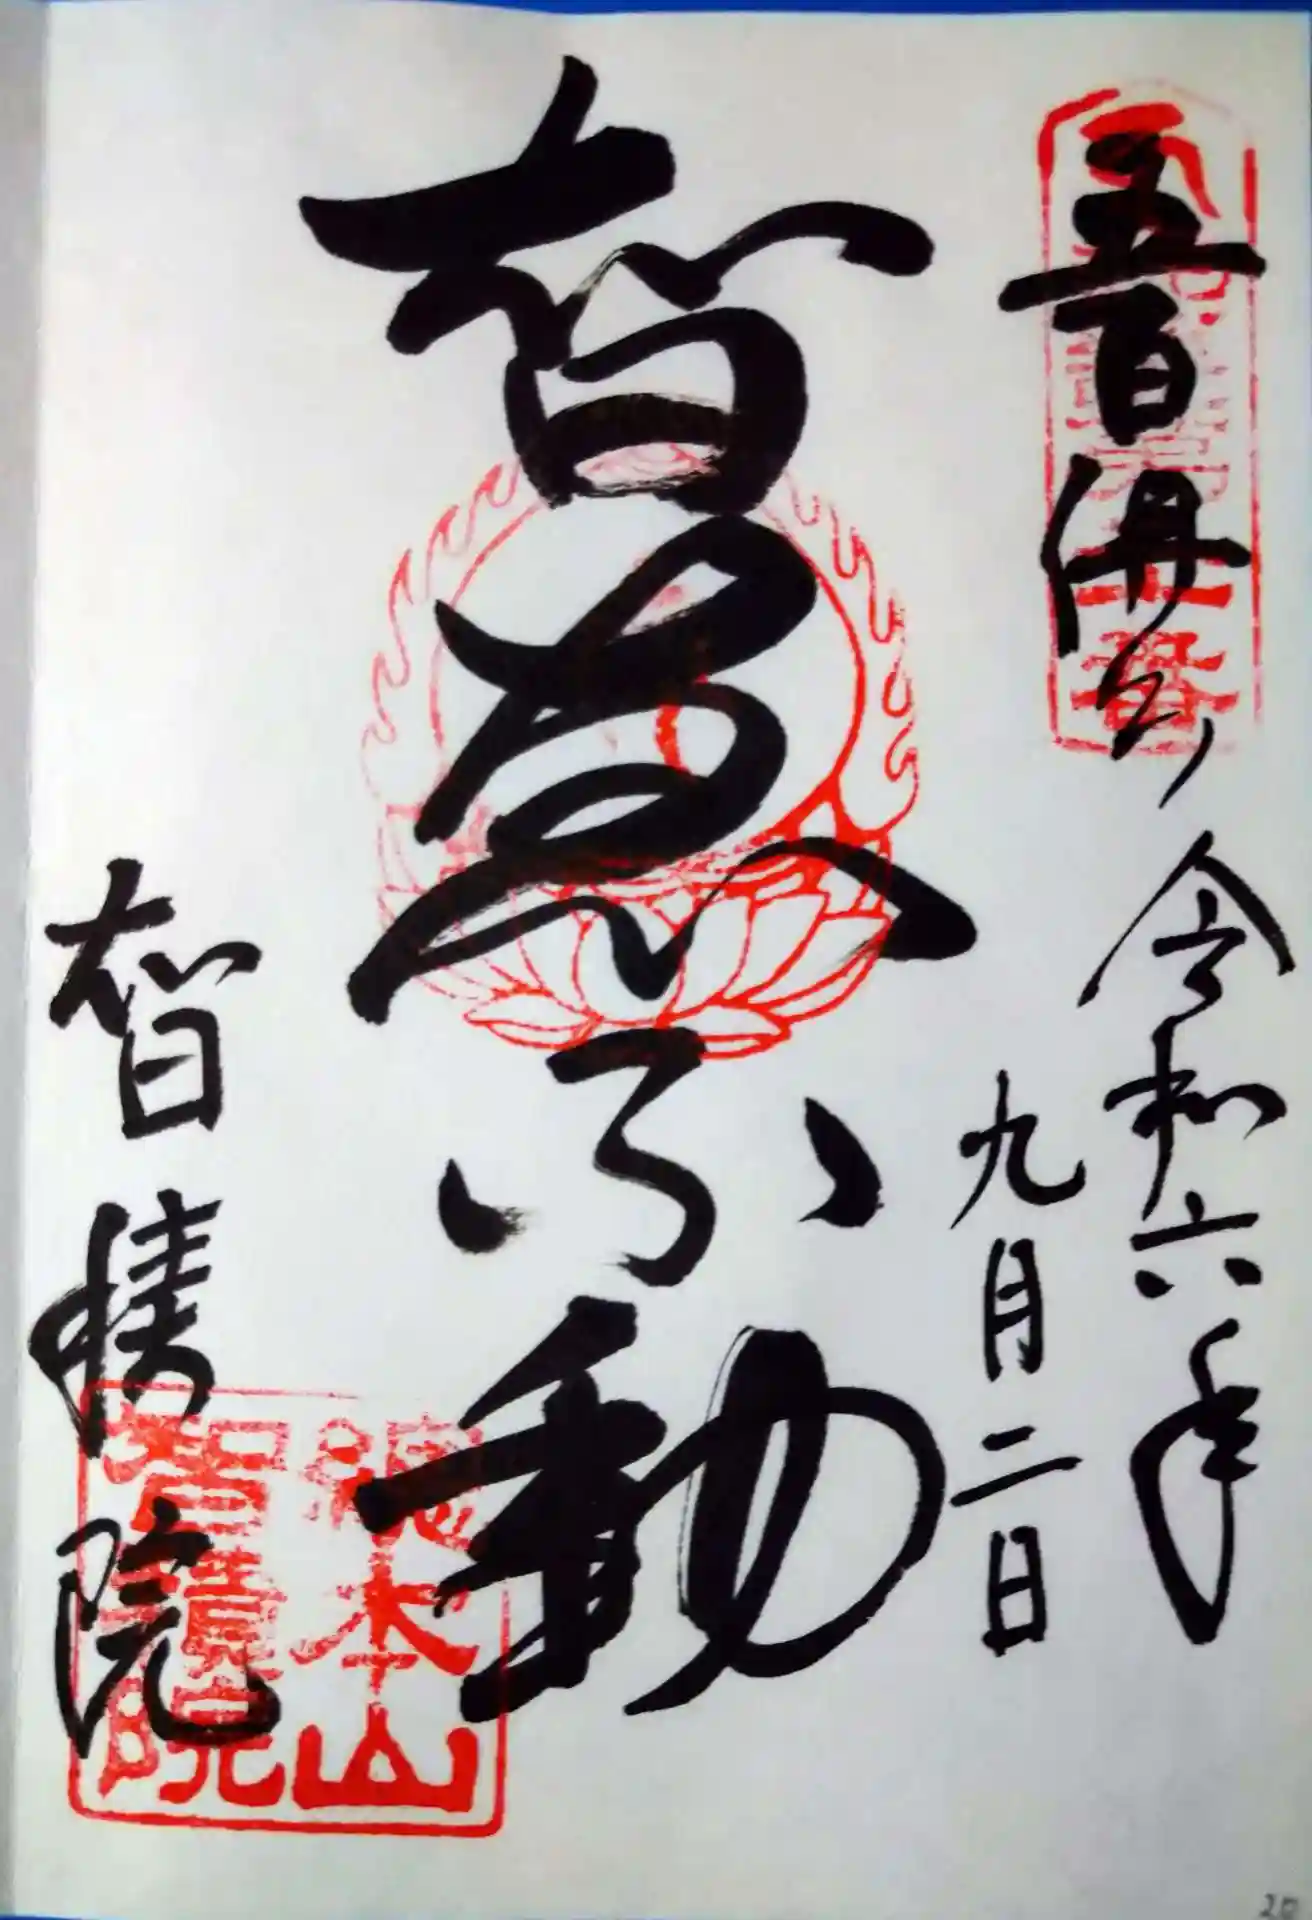 五百佛山
令和六年
九月二日
智恵不動
智積院
總本山
智積院
20